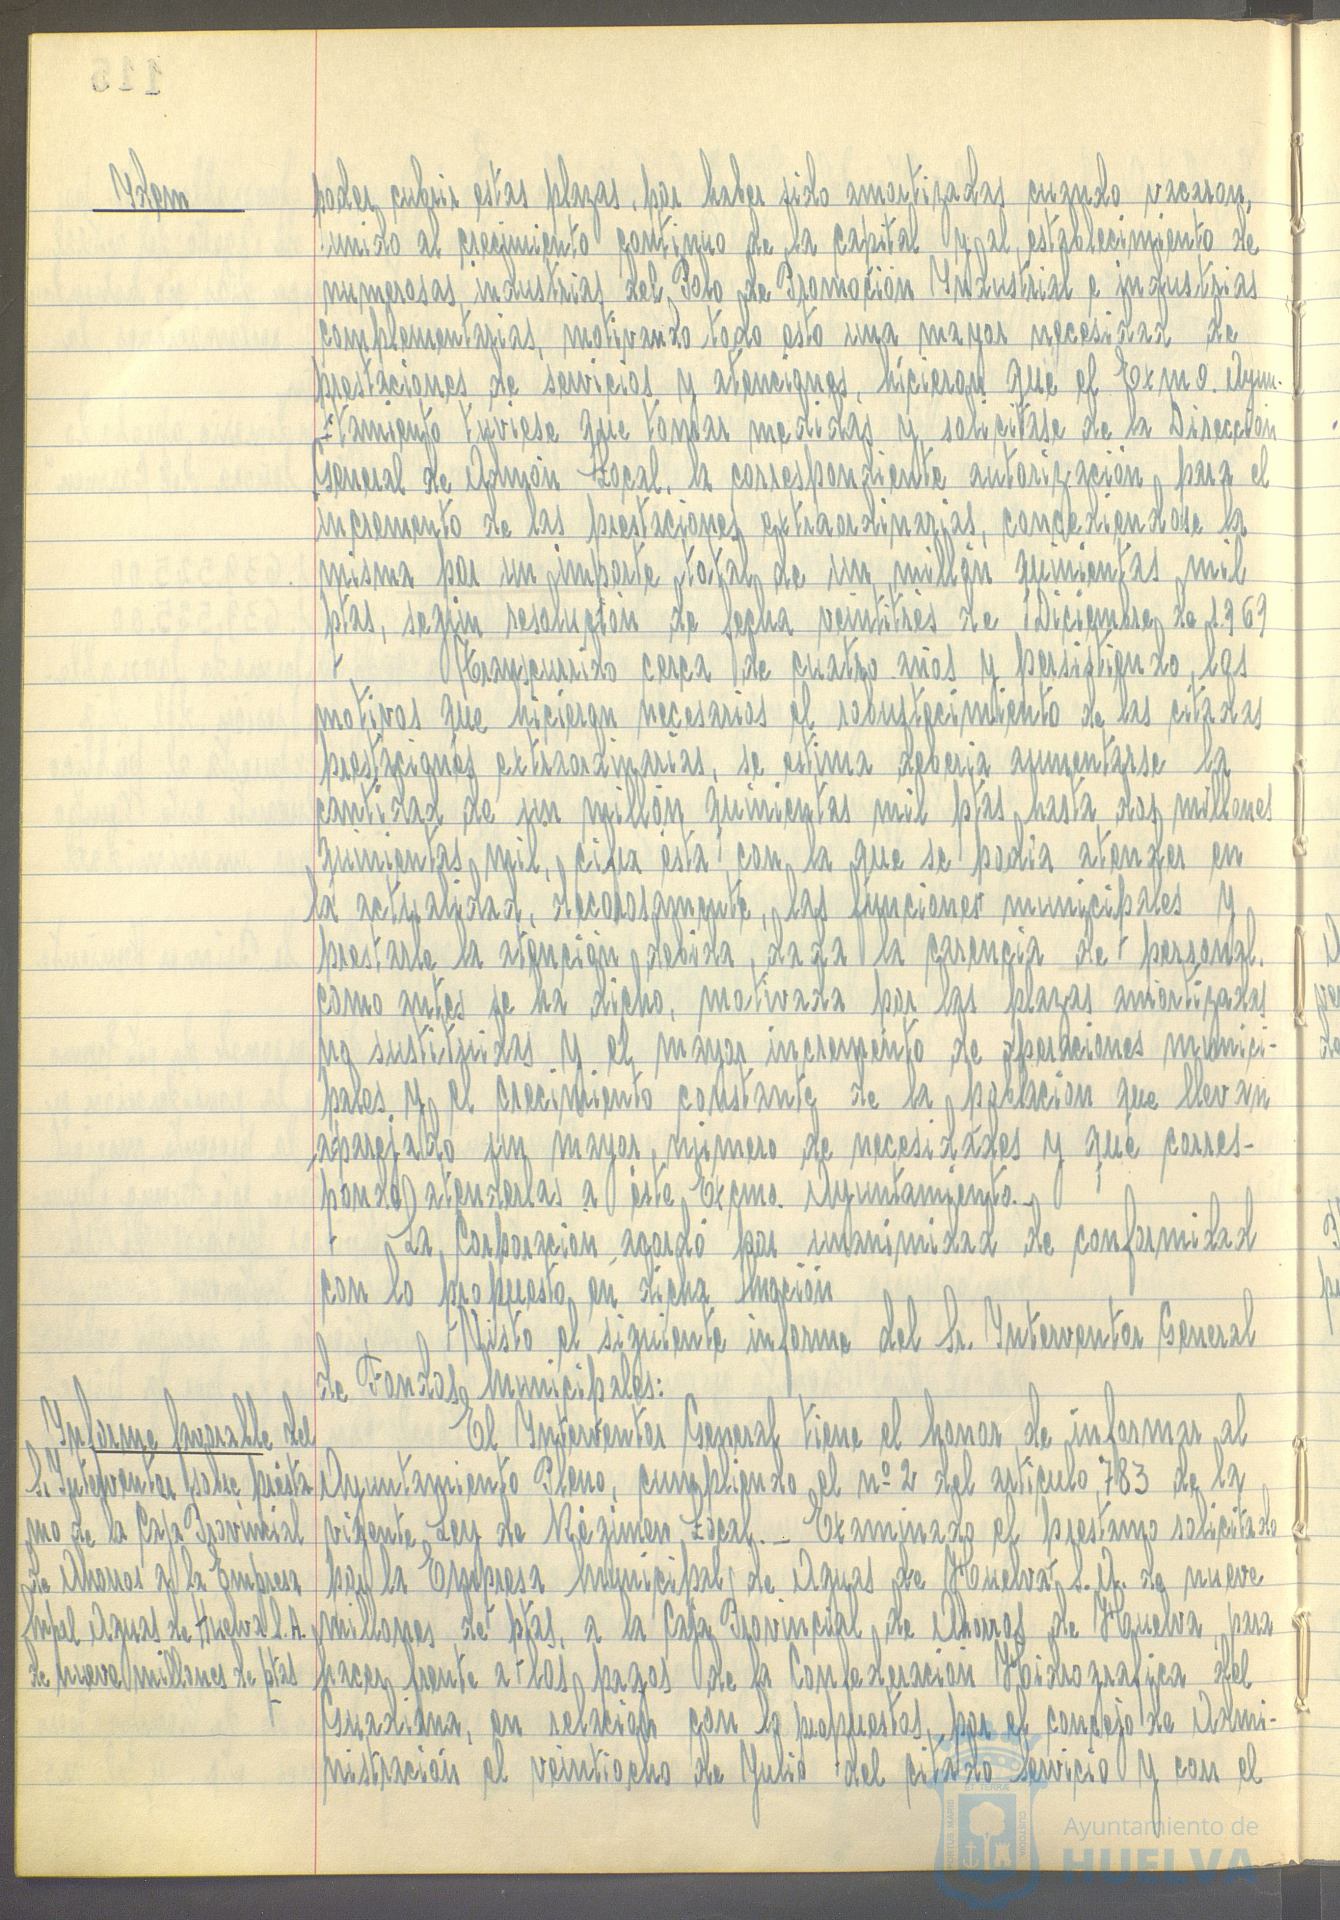 Idem
poder cubrir estas plazas, por haber sido amortizadas cuando vacaron,
unido al crecimiento continuo de la capital y al establecimiento de
numerosas industrias del Polo de Promoción Industrial e industrias
complementarias, motivando todo esto una mayor necesidad de
prestaciones de servicios y atenciones, hicieron que el Exmo. Ayun-
tamiento tuviese que tomar medidas y solicitase de la Dirección
General de Admón Local, la correspondiente autorización para el
incremento de las prestaciones extraordinarias, concediendose la
misma por un importe total de un millón quinientas mil
ptas, según resolución de fecha veintitrés de Diciembre de 1969
Transcurrido cerca de cuatro años y persistiendo los
motivos que hicieron necesarios el robustecimiento de las citadas
prestaciones extraordinarias, se estima deberia aumentarse la
cantidad de un millón quinientas mil ptas hasta dos millones
quinientas mil, cifra ésta con la que se podia atender en
la actualidad, decorosamente, las funciones municipales y
prestarle la atención debida, dada la carencia de personal.
como antes se ha dicho, motivada por las plazas amortizadas
no sustituidas y el mayor incremento de operaciones munici-
pales y el crecimiento constante de la población que llevan
aparejado un mayor número de necesidades y que corres-
ponde atenderlas a este Excmo. Ayuntamiento.-
La Corporación acordó por unanimidad de conformidad
con lo propuesto en dicha moción
Visto el siguiente informe del Sr. Interventor General
de Fondos Municipales:
Informe favorable del
Sr. Interventor sobre présta
mo de la Caja Provincial
de Ahorros a la Empresa
Mpal Aguas de Huelva S.A.
de nueve millones de ptas
El Interventor General tiene el honor de informar al
Ayuntamiento Pleno, cumpliendo el nº 2 del artículo 783 de la
vigente Ley de Régimen Local.- Examinado el prestamo solicitado
por la Empresa Municipal de Aguas de Huelva S.A. de nueve
millones de ptas, a la Caja Provincial de Ahorros de Huelva para
hacer frente a los pagos de la Confederación Hidrografica del
Guadiana, en relación con la propuestas, por el concejo de Admi-
nistración el veintiocho de Julio del citado servicio y con el
Ayuntamiento de
HUELVA